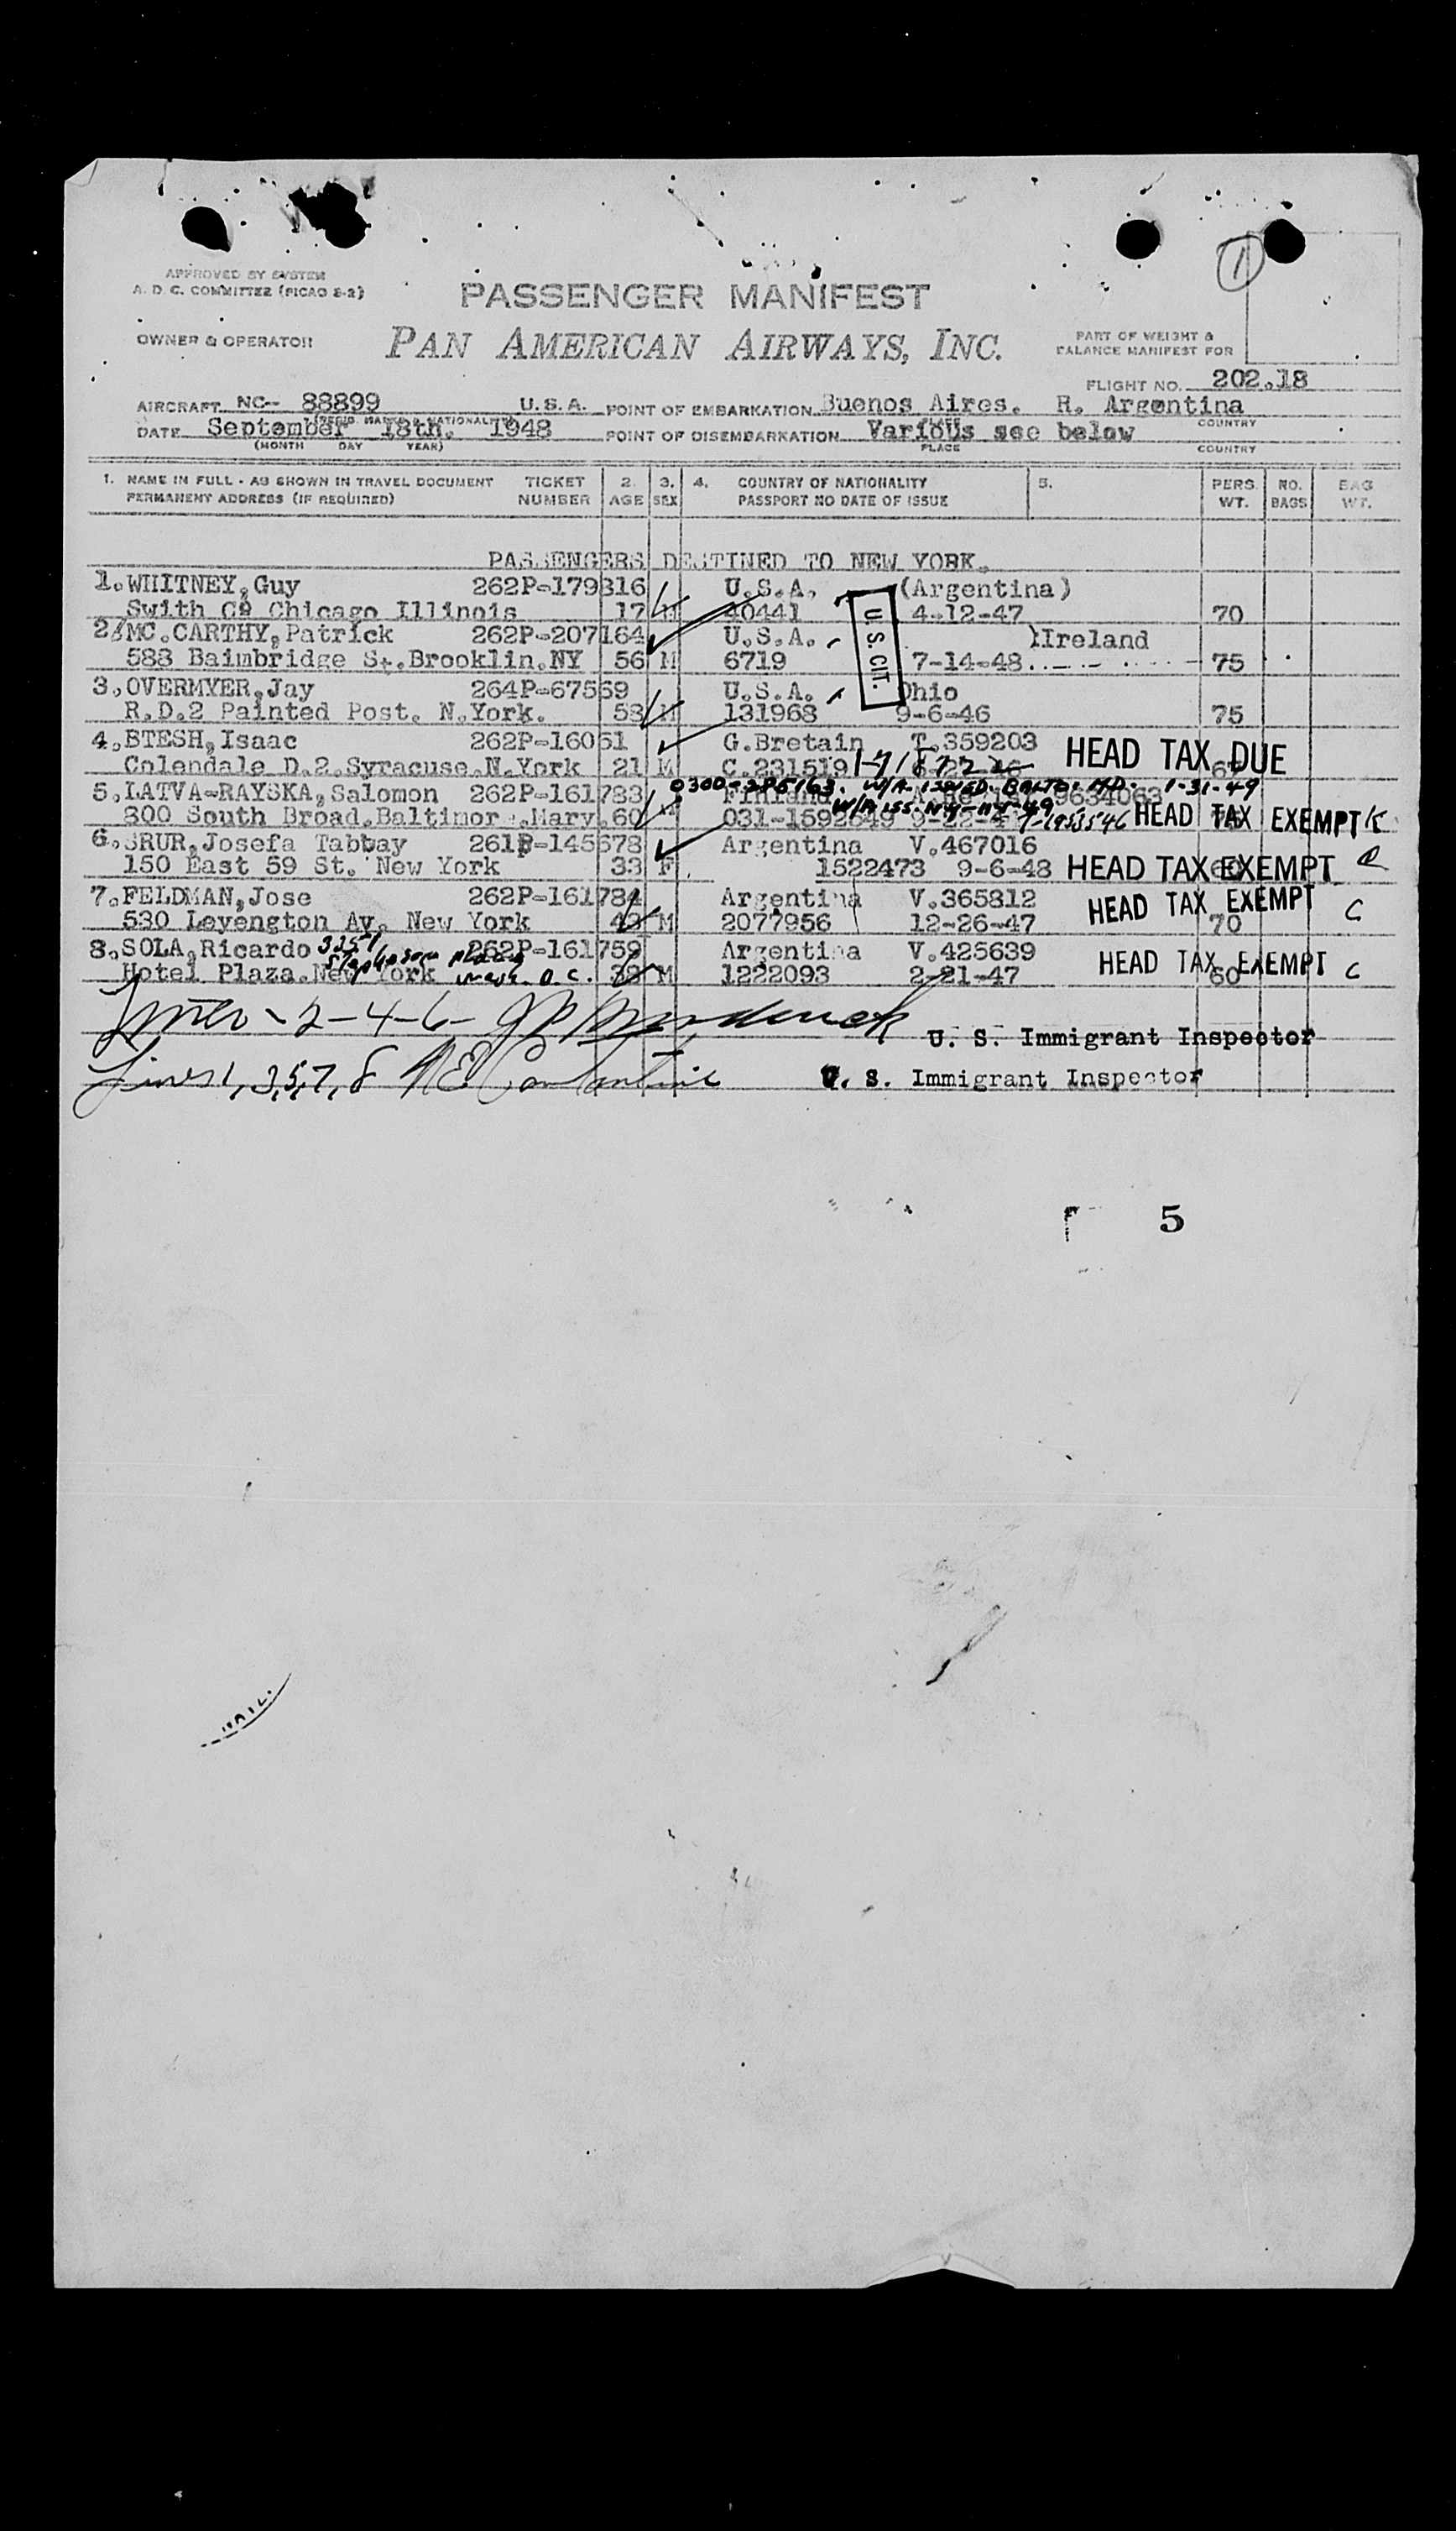 1
APPROVED BY SYSTEM
A. D. C. COMMITTEE (PICAO 8-2)
PASSENGER MANIFEST
OWNER & OPERATOR
PAN AMERICAN AIRWAYS, INC.
PART OF WEIGHT &
BALANCE MANIFEST FOR
FLIGHT NO. 202.18
AIRCRAFT NC-- 88899 U.S.A. POINT OF EMBARKATION Buenos Aires. R. Argentina
COUNTRY
DATE September 18th. 1948 POINT OF DISEMBARKATION Various see below
(MONTH DAY YEAR) PLACE COUNTRY
1. NAME IN FULL - AS SHOWN IN TRAVEL DOCUMENT TICKET 2. 3. 4. COUNTRY OF NATIONALITY 5. PERS. NO. BAG
PERMANENT ADDRESS (IF REQUIRED) NUMBER AGE SEX PASSPORT NO DATE OF ISSUE WT. BAGS WT.
PASSENGERS DESTINED TO NEW YORK.
1. WHITNEY, Guy 262P-179816 U.S.A. (Argentina)
Swith Co Chicago Illinois 17 M 40441 4-12-47 70
2. MC.CARTHY, Patrick 262P-207164 U.S.A. Ireland
588 Baimbridge St. Brooklin.NY 56 M 6719 7-14-48 75
U.S. CIT.
3. OVERMYER, Jay 264P-67569 U.S.A. Ohio
R.D.2 Painted Post. N.York. 58 M 131968 9-6-46 75
4. BTESH, Isaac 262P-16051 G.Bretain T.359203 HEAD TAX DUE
Colendale D.2.Syracuse.N.York 21 M C.231519
0300-285163. W/A. ISSUED. BALTO. MD. 1-31-49
5. LATVA-RAYSKA, Salomon 262P-161783 Finland 9634063
300 South Broad.Baltimor .Mary. 60 M 031-1592649 HEAD TAX EXEMPT K
6. SRUR, Josefa Tabbay 261P-145678 Argentina V.467016
150 East 59 St. New York 33 F 1522473 9-6-48 HEAD TAX EXEMPT
7. FELDMAN, Jose 262P-161784 Argentina V.365812 HEAD TAX EXEMPT C
530 Leyengton Av. New York 43 M 2077956 12-26-47 70
8. SOLA, Ricardo 3251 262P-161759 Argentina V.425639 HEAD TAX EXEMPT C
Hotel Plaza.New York Wash. D.C. 38 M 1222093 2-21-47 60
Lines - 2-4-6- U. S. Immigrant Inspector
Lines 1, 3, 5, 7, 8 U. S. Immigrant Inspector
5